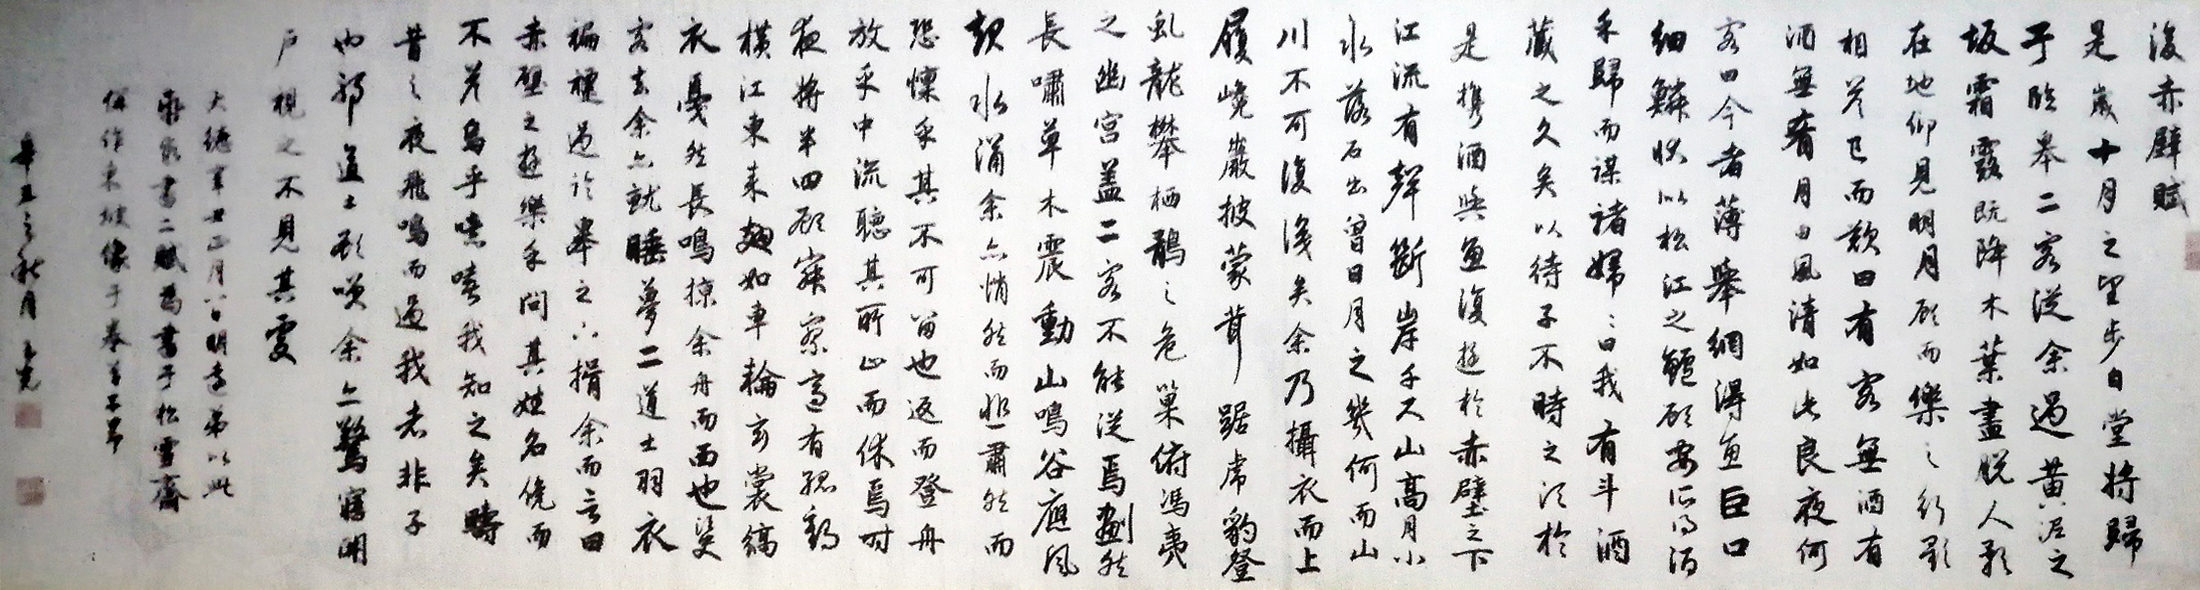 後赤壁賦
是歲十月之望步自堂將歸
于臨皋二客從余過黃泥之
坂霜露既降木葉盡脫人影
在地仰見明月顧而樂之行歌
相答已而歎曰有客無酒有
酒無肴月白風清如此良夜何
客曰今者薄暮舉網得魚巨口
細鱗狀似松江之鱸顧安所得酒
乎歸而謀諸婦〻曰我有斗酒
藏之久矣以待子不時之須於
是攜酒與魚復遊於赤壁之下
江流有聲斷岸千尺山高月小
水落石出曾日月之幾何而山
川不可復識矣余乃攝衣而上
履巉巖披蒙茸踞虎豹登
虬龍攀栖鶻之危巢俯馮夷
之幽宮蓋二客不能從焉劃然
長嘯草木震動山鳴谷應風
起水涌余亦悄然而悲肅然而
恐懍乎其不可留也返而登舟
放乎中流聽其所止而休焉時
夜將半四顧寂寥適有孤鶴
橫江東來翅如車輪玄裳縞
衣戛然長鳴掠余舟而西也須臾
客去余亦就睡夢二道士羽衣
褊褼過臨皋之下揖余而言曰
赤壁之遊樂乎問其姓名俛而
不答烏乎噫嘻我知之矣疇
昔之夜飛鳴而過我者非子
也邪道士顧笑余亦驚寤開
戶視之不見其處
大德辛丑正月八日明遠弟以此
紙求書二賦為書于松雪齋
併作東坡像于卷首子昂
辛丑之秋月